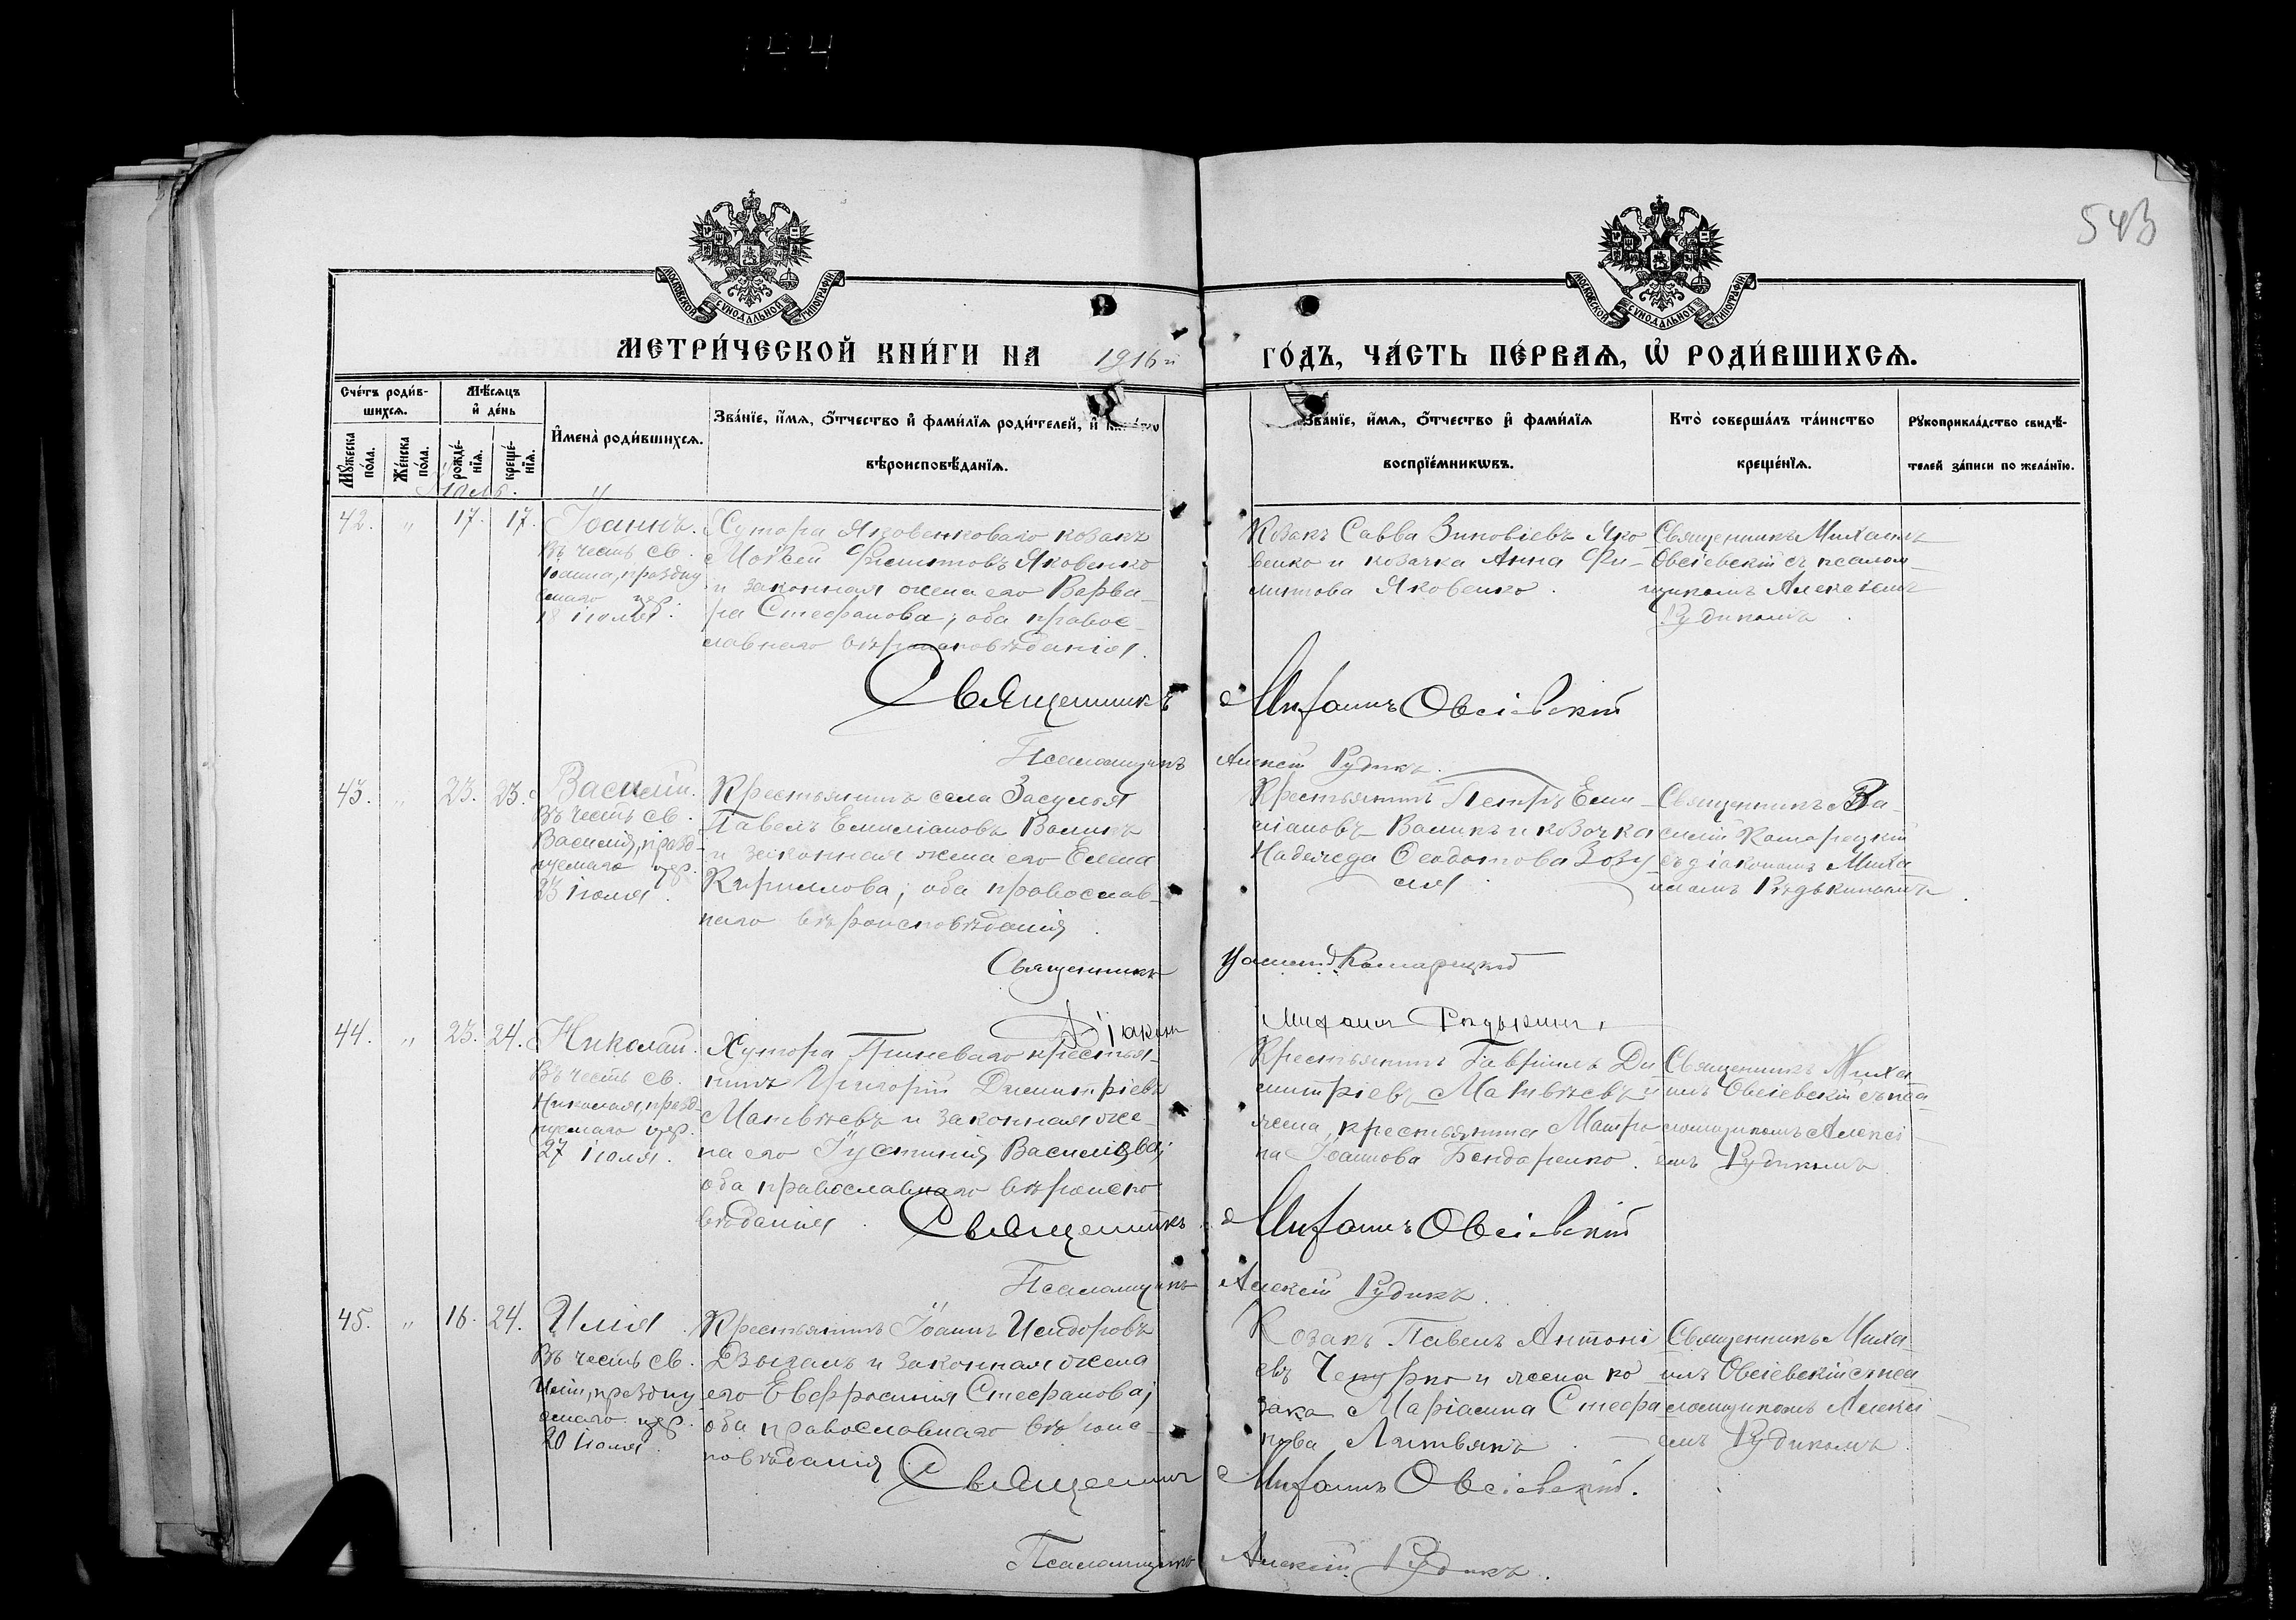 543
МОСКОВСКОЙ СУНОДАЛЬНОЙ ТИПОГРАФІИ
МОСКОВСКОЙ СУНОДАЛЬНОЙ ТИПОГРАФІИ
МЕТРИ́ЧЕСКОЙ КНИ́ГИ НА 1916й ГО́ДЪ, ЧА́СТЬ ПЕ́РВАѦ, Ѡ҆ РОДИ́ВШИХСѦ.
Сче́тъ роди́в-
шихсѧ.
Мѣ́сѧцъ
и҆ де́нь
Мꙋ́жеска
по́ла.
Же́нска
по́ла.
рожде́-
нїѧ.
креще́-
нїѧ.
И҆мена̀ роди́вшихсѧ.
Зва́нїе, и҆́мѧ, ѻ҆́тчество и҆ фами́лїѧ роди́телей, и҆
вѣроисповѣ́данїѧ.
Зва́нїе, и҆́мѧ, ѻ҆́тчество и҆ фами́лїѧ
воспрїе́мникѡвъ.
Кто̀ соверша́лъ та́инство
креще́нїѧ.
Рꙋкоприкла́дство свидѣ́-
телей за́писи по жела́нїю.
Іюль.
42. " 17. 17. Іоаннъ.
Въ честь св.
Іоанна, праздну
емаго цер.
18 іюля.
Хутора Яковенковаго козакъ
Мойсей Филитовъ Яковенко
и законная жена его Варва-
ра Стефанова; оба правос-
лавнаго вѣроисповѣданія.
Козакъ Савва Зиновіевъ Яко
венко и козачка Анна Фи-
литова Яковенко.
Священникъ Михаилъ
Овсіевскій съ псалом-
щикомъ Алексіемъ
Рудикомъ.
Священникъ Михаилъ Овсіевскій
Псаломщикъ Алексій Рудикъ.
43. " 23. 23. Василій.
Въ честь св.
Василія, празд-
нуемаго цер.
23 іюля.
Крестьянинъ села Засулья
Павелъ Емиліановъ Воликъ
и законная жена его Елена
Кириллова; оба православ-
наго вѣроисповѣданія.
Крестьянинъ Петръ Еми-
ліановъ Воликъ и козачка
Надежда Ѳеодотова Зозу
ля.
Священникъ Ва-
силій Комарецкій
съ діакономъ Миха
иломъ Рѣдькинымъ.
Священникъ Василій Комарецкій
Діаконъ Михаилъ Рѣдькинъ.
44. " 23. 24. Николай.
Въ честь св.
Николая, празд-
нуемаго цер.
27 іюля.
Хутора Гриневаго крестья-
нинъ Григорій Димитріевъ
Матвѣевъ и законная же-
на его Іустинія Василіева;
оба православнаго вѣроиспо
вѣданія.
Крестьянинъ Гавріилъ Ди
митріевъ Матвѣевъ и
жена крестьянина Матро
на Іоаннова Бондаренко.
Священникъ Миха
илъ Овсіевскій съ пса
ломщикомъ Алексі-
емъ Рудикомъ.
Священникъ Михаилъ Овсіевскій
Псаломщикъ Алексій Рудикъ.
45. " 16. 24. Илія.
Въ честь св.
Иліи, праздну
емаго цер.
20 іюля.
Крестьянинъ Іоаннъ Исидоровъ
Дзыганъ и законная жена
его Евфросинія Стефанова;
оба православнаго вѣроис-
повѣданія
Козакъ Павелъ Антоні
евъ Чепурко и жена ко
зака Маріамна Стефа
нова Литвякъ.
Священникъ Миха-
илъ Овсіевскій съ пса
ломщикомъ Алексі-
емъ Рудикомъ.
Священникъ Михаилъ Овсіевскій.
Псаломщикъ Алексій Рудикъ.